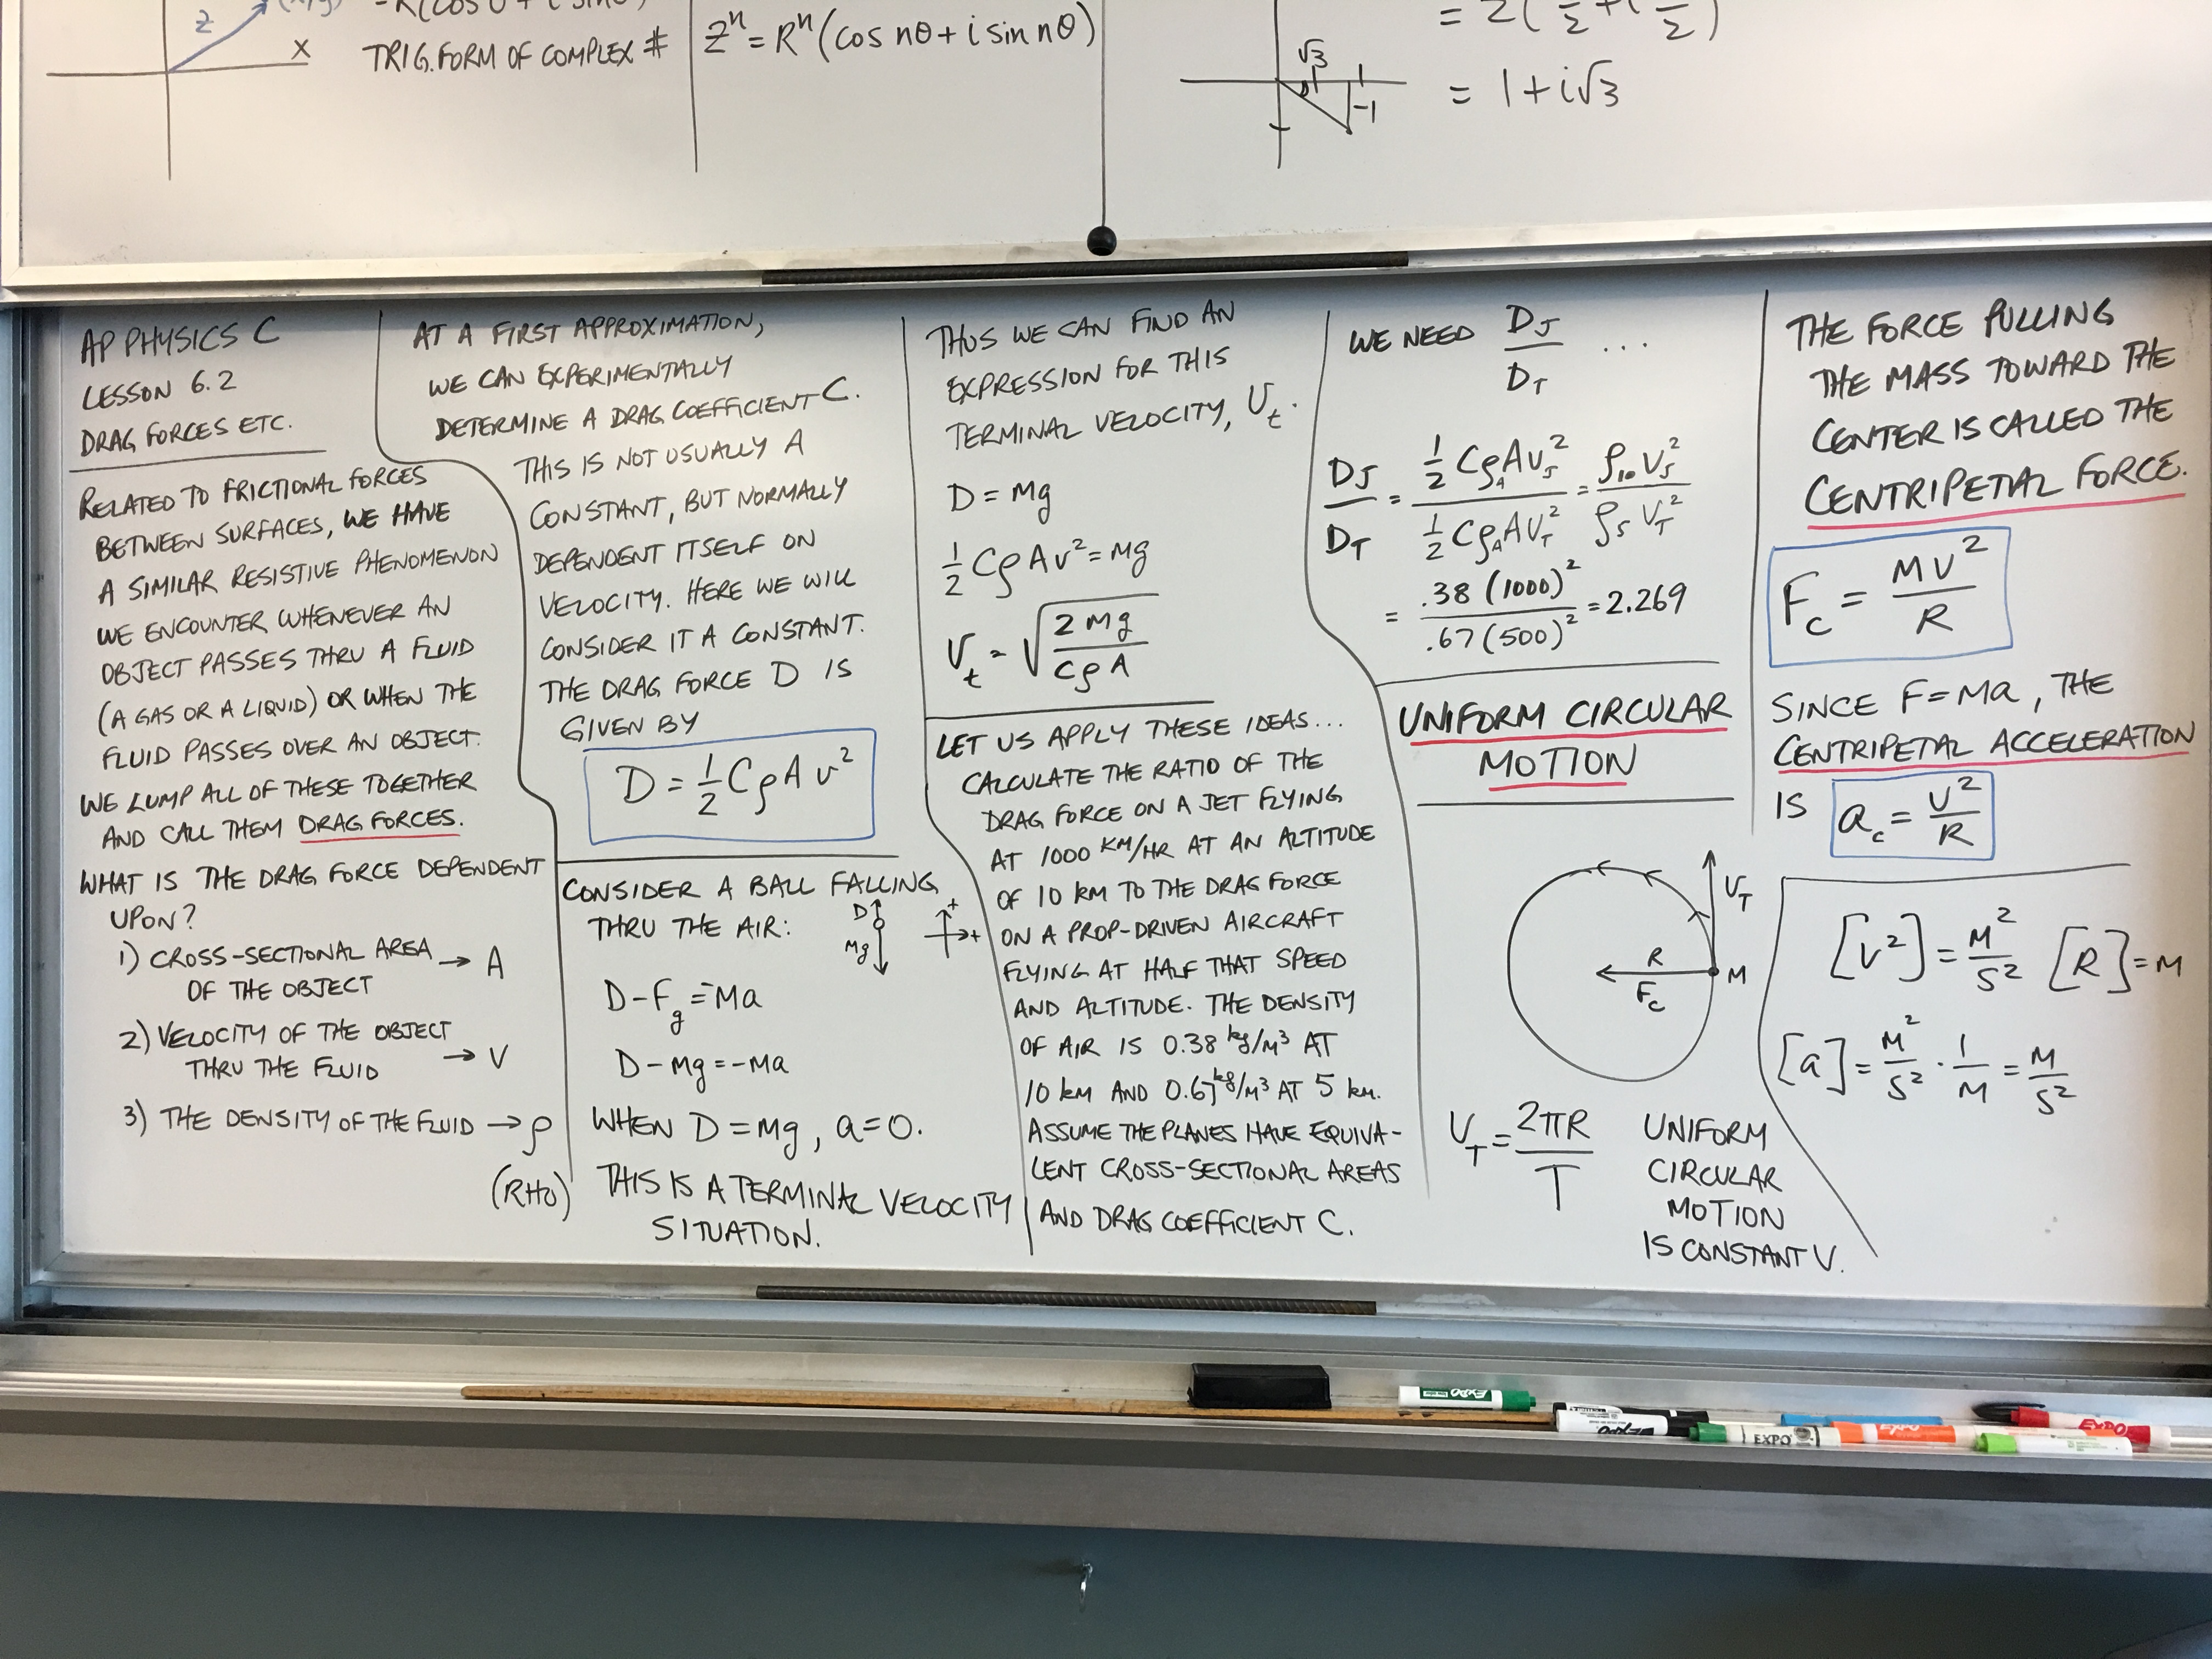 Z
X
TRIG. FORM OF COMPLEX #
Zⁿ = Rⁿ (cos nθ + i sin nθ)
√3
1
-1
= 1 + i√3
AP PHYSICS C
LESSON 6.2
DRAG FORCES ETC.
RELATED TO FRICTIONAL FORCES
BETWEEN SURFACES, WE HAVE
A SIMILAR RESISTIVE PHENOMENON
WE ENCOUNTER WHENEVER AN
OBJECT PASSES THRU A FLUID
(A GAS OR A LIQUID) OR WHEN THE
FLUID PASSES OVER AN OBJECT.
WE LUMP ALL OF THESE TOGETHER
AND CALL THEM DRAG FORCES.
WHAT IS THE DRAG FORCE DEPENDENT
UPON?
1) CROSS-SECTIONAL AREA
OF THE OBJECT → A
2) VELOCITY OF THE OBJECT
THRU THE FLUID → V
3) THE DENSITY OF THE FLUID → ρ
(RHO)
AT A FIRST APPROXIMATION,
WE CAN EXPERIMENTALLY
DETERMINE A DRAG COEFFICIENT C.
THIS IS NOT USUALLY A
CONSTANT, BUT NORMALLY
DEPENDENT ITSELF ON
VELOCITY. HERE WE WILL
CONSIDER IT A CONSTANT.
THE DRAG FORCE D IS
GIVEN BY
D = 1/2 CρAv²
CONSIDER A BALL FALLING
THRU THE AIR:
D
Mg
+
+
D - Fg = -Ma
D - Mg = -Ma
WHEN D = Mg, a = 0.
THIS IS A TERMINAL VELOCITY
SITUATION.
THUS WE CAN FIND AN
EXPRESSION FOR THIS
TERMINAL VELOCITY, Vt.
D = Mg
1/2 CρAv² = Mg
Vt = √(2Mg/CρA)
LET US APPLY THESE IDEAS...
CALCULATE THE RATIO OF THE
DRAG FORCE ON A JET FLYING
AT 1000 KM/HR AT AN ALTITUDE
OF 10 KM TO THE DRAG FORCE
ON A PROP-DRIVEN AIRCRAFT
FLYING AT HALF THAT SPEED
AND ALTITUDE. THE DENSITY
OF AIR IS 0.38 kg/M³ AT
10 KM AND 0.67 kg/M³ AT 5 KM.
ASSUME THE PLANES HAVE EQUIVA-
LENT CROSS-SECTIONAL AREAS
AND DRAG COEFFICIENT C.
WE NEED DJ/DT ...
DJ/DT = (1/2 CρAAvJ²)/(1/2 CρAAvT²) = ρ10 VJ²/ρ5 VT²
= .38 (1000)²/.67 (500)² = 2.269
UNIFORM CIRCULAR
MOTION
VT
R
Fc
M
VT = 2πR/T
UNIFORM
CIRCULAR
MOTION
IS CONSTANT V.
THE FORCE PULLING
THE MASS TOWARD THE
CENTER IS CALLED THE
CENTRIPETAL FORCE.
Fc = MV²/R
SINCE F = Ma, THE
CENTRIPETAL ACCELERATION
IS ac = V²/R
[V²] = M²/S² [R] = M
[a] = M²/S² · 1/M = M/S²
EXPO
EXPO
EXPO
EXPO